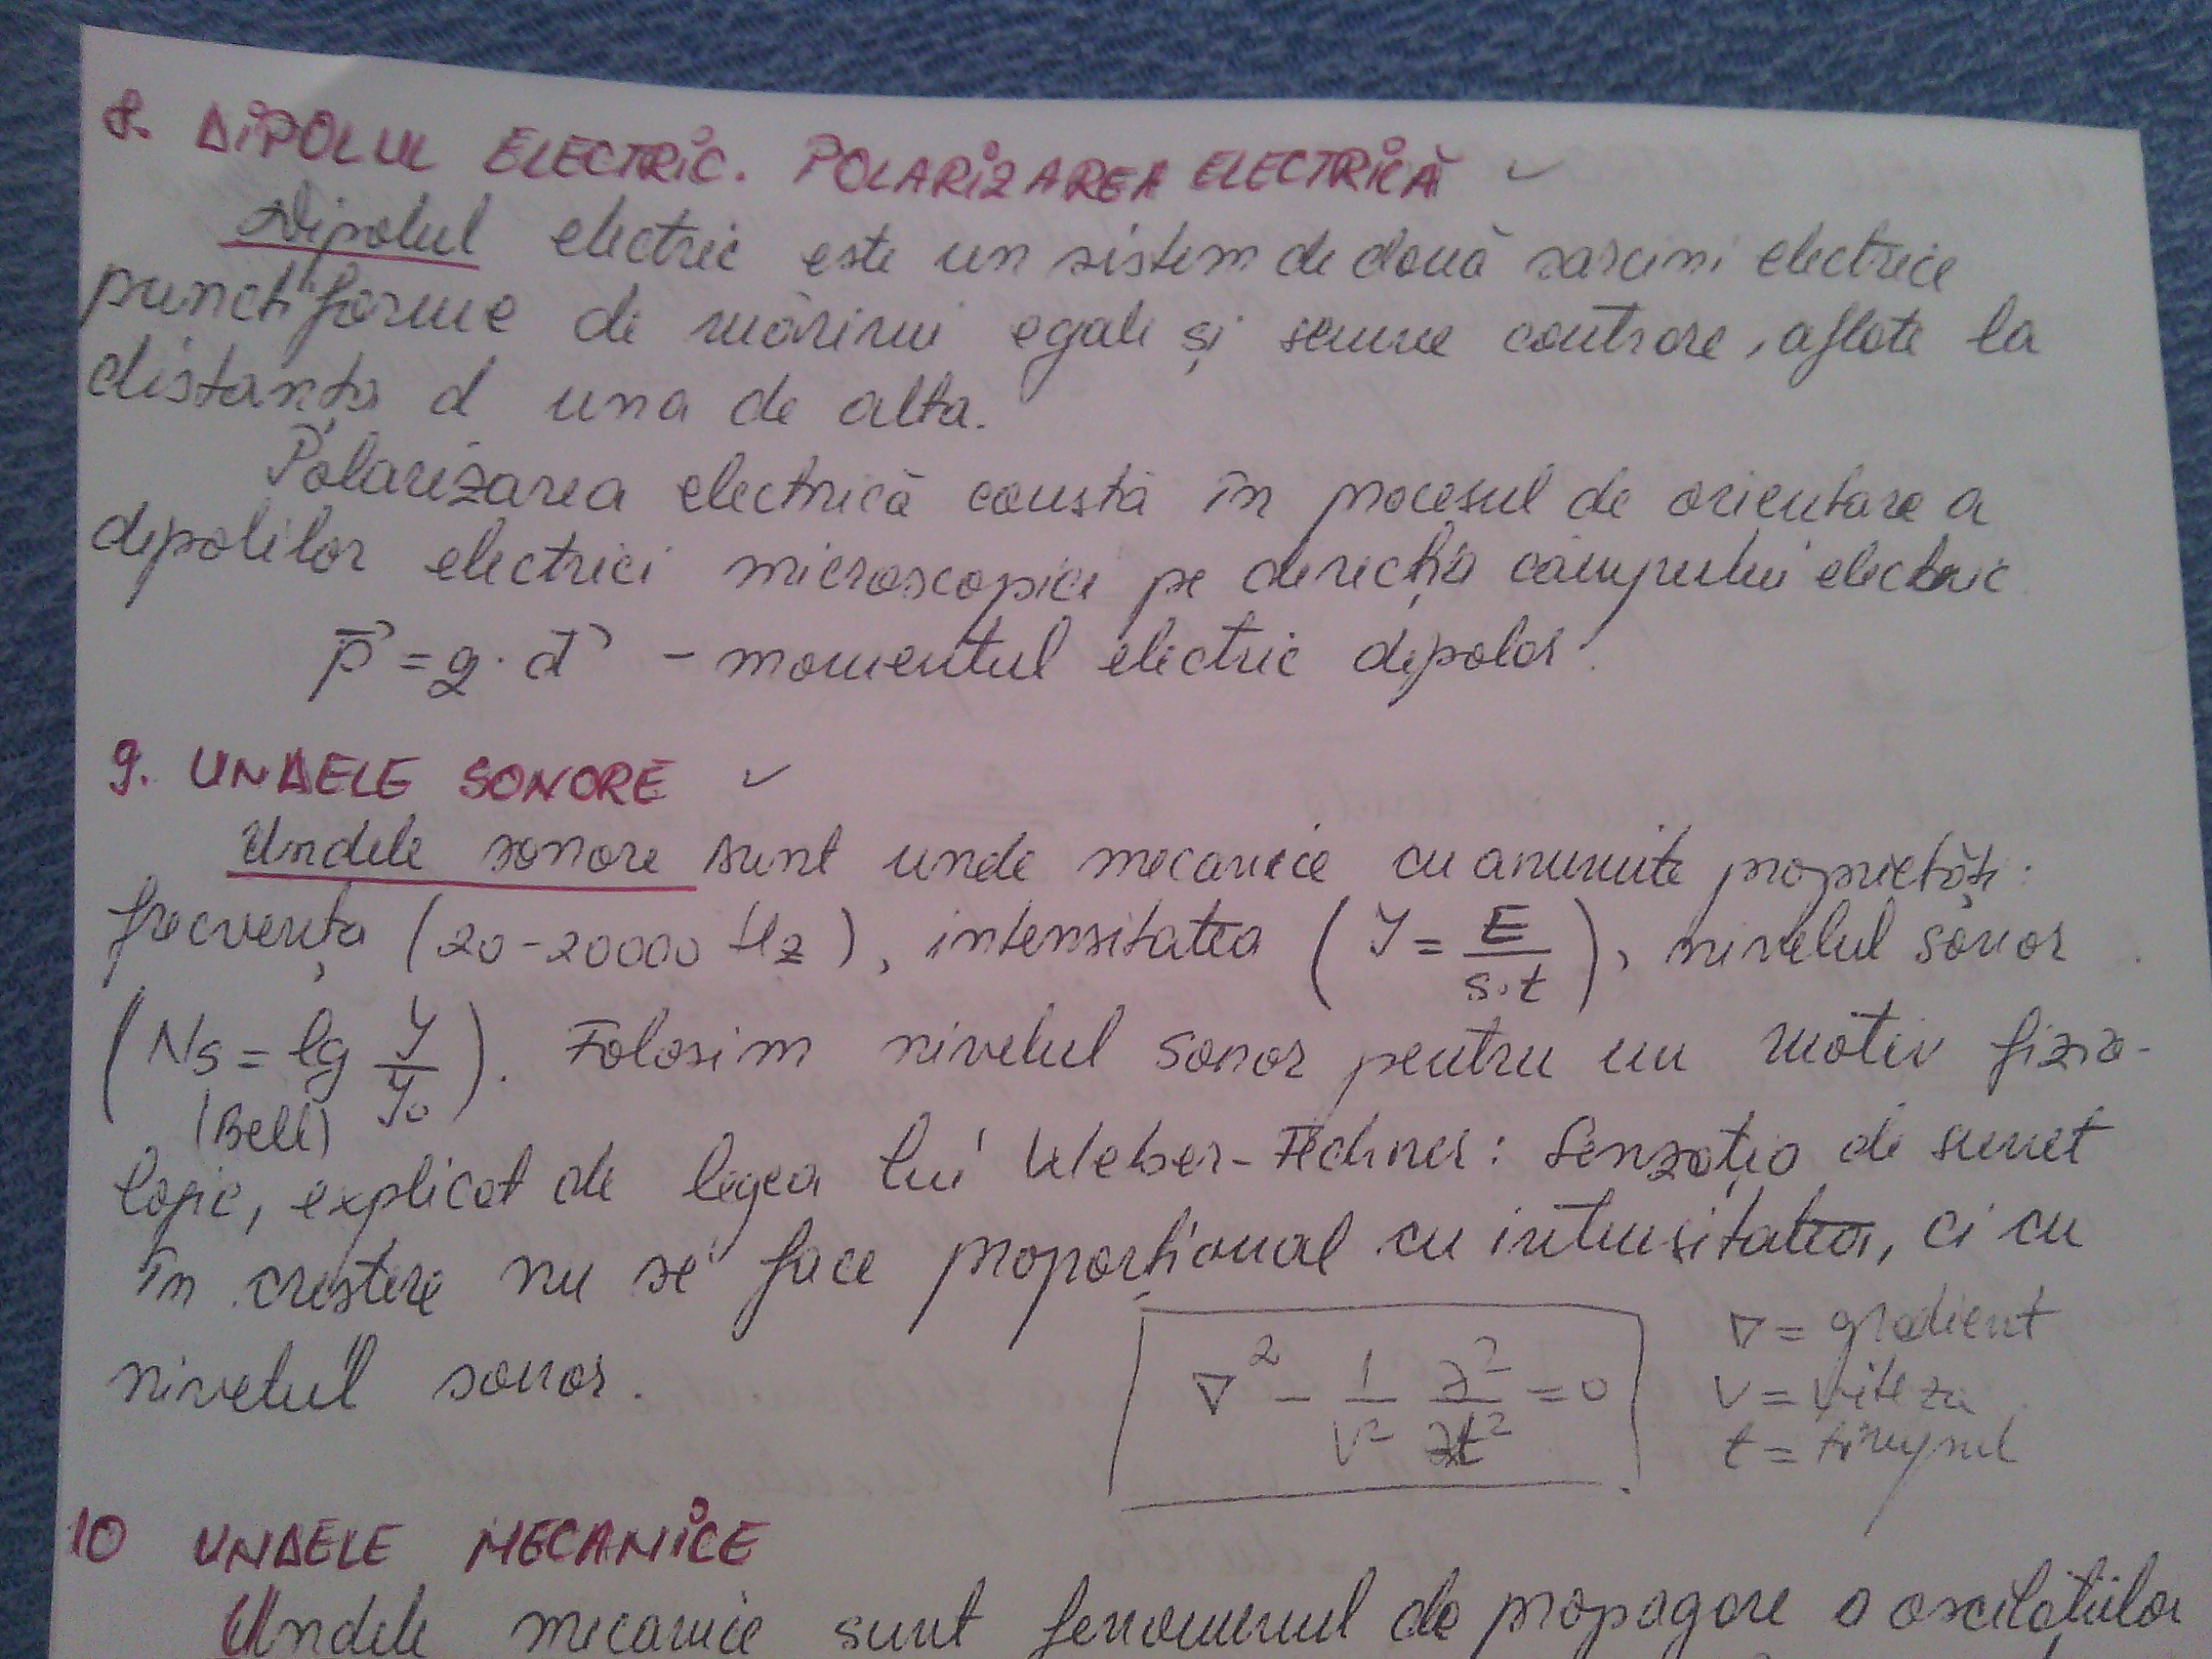 8. DIPOLUL ELECTRIC. POLARIZAREA ELECTRICĂ ✓
Dipolul electric este un sistem de două sarcini electrice
punctiforme de mărimi egale și semne contrare, aflate la
distanța d una de alta.
Polarizarea electrică constă în procesul de orientare a
dipolilor electrici microscopici pe direcția câmpului electric
p⃗ = q · d⃗ - momentul electric dipolar.
9. UNDELE SONORE ✓
Undele sonore sunt unde mecanice cu anumite proprietăți:
frecvența (20-20000 Hz), intensitatea (I = E/(S·t)), nivelul sonor
(Ns = lg I/I₀). Folosim nivelul sonor pentru un motiv fizio-
(Bell)
logic, explicat de legea lui Weber-Fechner: Senzația de sunet
în creștere nu se face proporțional cu intensitatea, ci cu
nivelul sonor.
∇² - 1/V² ∂²/∂t² = 0
∇ = gradient
V = viteza
t = timpul
10 UNDELE MECANICE
Undele mecanice sunt fenomenul de propagare a oscilațiilor